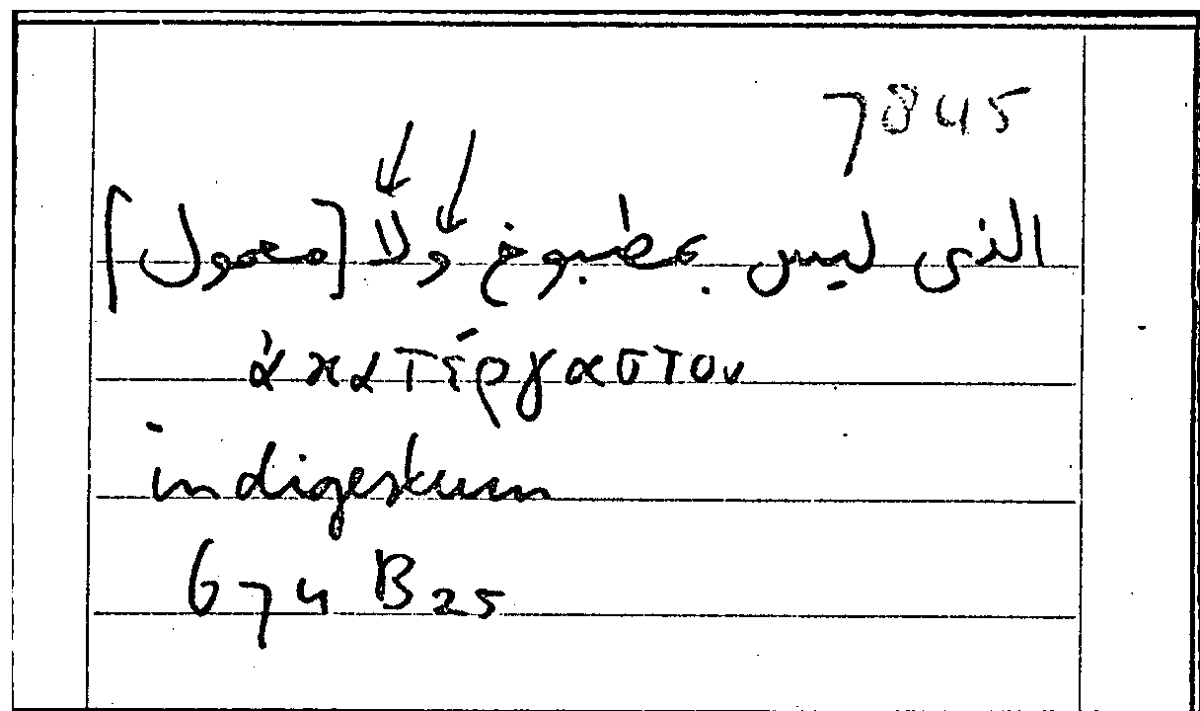 7845
الذى ليس بمطبوخ ولا [معمول]
ἀκατέργαστον
indigestum
674 B 25